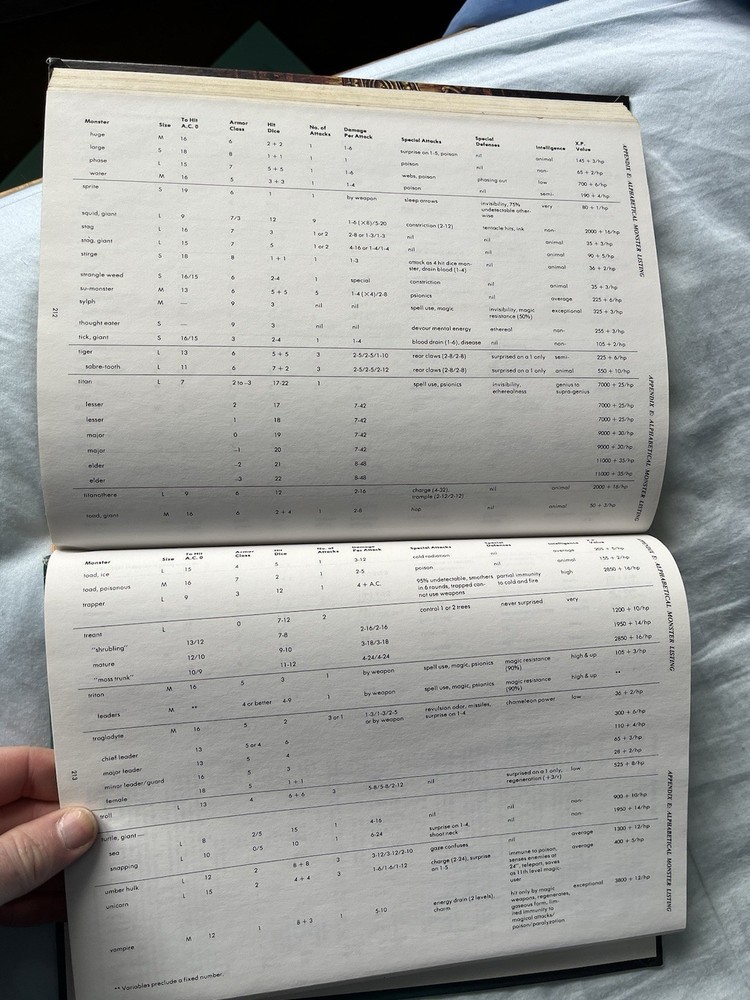 APPENDIX E: ALPHABETICAL MONSTER LISTING
APPENDIX E: ALPHABETICAL MONSTER LISTING
Monster Size To Hit A.C. 0 Armor Class Hit Dice No. of Attacks Damage Per Attack Special Attacks Special Defenses Intelligence X.P. Value
huge M 16 6 2 + 2 1 1-6 surprise on 1-5, poison nil animal 145 + 3/hp
large S 18 8 1 + 1 1 1 poison nil non- 65 + 2/hp
phase L 15 7 5 + 5 1 1-6 webs, poison phasing out low 700 + 6/hp
water M 16 5 3 + 3 1 1-4 poison nil semi- 190 + 4/hp
sprite S 19 6 1 by weapon sleep arrows invisibility, 75% undetectable otherwise very 80 + 1/hp
squid, giant L 9 7/3 12 9 1-6 (×8)/5-20 constriction (2-12) tentacle hits, ink non- 2000 + 16/hp
stag L 16 7 3 1 or 2 2-8 or 1-3/1-3 nil nil animal 35 + 3/hp
stag, giant L 15 7 5 1 or 2 4-16 or 1-4/1-4 nil nil animal 90 + 5/hp
stirge S 18 8 1 + 1 1 1-3 attack as 4 hit dice monster, drain blood (1-4) nil animal 36 + 2/hp
strangle weed S 16/15 6 2-4 1 special constriction nil animal 35 + 3/hp
su-monster M 13 6 5 + 5 5 1-4 (×4)/2-8 psionics nil average 225 + 6/hp
sylph M — 9 3 nil nil spell use, magic invisibility, magic resistance (50%) exceptional 325 + 3/hp
thought eater S — 9 3 nil nil devour mental energy ethereal non- 255 + 3/hp
tick, giant S 16/15 3 2-4 1 1-4 blood drain (1-6), disease nil non- 105 + 2/hp
tiger L 13 6 5 + 5 3 2-5/2-5/1-10 rear claws (2-8/2-8) surprised on a 1 only semi- 225 + 6/hp
sabre-tooth L 11 6 7 + 2 3 2-5/2-5/2-12 rear claws (2-8/2-8) surprised on a 1 only animal 550 + 10/hp
titan L 7 2 to –3 17-22 1 spell use, psionics invisibility, etherealness genius to supra-genius 7000 + 25/hp
lesser 2 17 7-42 7000 + 25/hp
lesser 1 18 7-42 7000 + 25/hp
major 0 19 7-42 9000 + 30/hp
major –1 20 7-42 9000 + 30/hp
elder –2 21 8-48 11000 + 35/hp
elder –3 22 8-48 11000 + 35/hp
titanothere L 9 6 12 2-16 charge (4-32), trample (2-12/2-12) nil animal 2000 + 16/hp
toad, giant M 16 6 2 + 4 1 2-8 hop nil animal 50 + 3/hp
212
APPENDIX E: ALPHABETICAL MONSTER LISTING
APPENDIX E: ALPHABETICAL MONSTER LISTING
Monster Size To Hit A.C. 0 Armor Class Hit Dice No. of Attacks Damage Per Attack Special Attacks Special Defenses Intelligence X.P. Value
toad, ice L 15 4 5 1 3-12 cold radiation nil average 205 + 5/hp
toad, poisonous M 16 7 2 1 2-5 poison nil 155 + 2/hp
trapper L 9 3 12 1 4 + A.C. 95% undetectable, smothers in 6 rounds, trapped cannot use weapons partial immunity to cold and fire high 2850 + 16/hp
treant L 0 7-12 2 control 1 or 2 trees never surprised very
"shrubling" 13/12 7-8 2-16/2-16 1200 + 10/hp
mature 12/10 9-10 3-18/3-18 1950 + 14/hp
"mass trunk" 10/9 11-12 4-24/4-24 2850 + 16/hp
triton M 16 5 3 1 by weapon spell use, magic, psionics magic resistance (90%) high & up 105 + 3/hp
leaders M ** 4 or better 4-9 1 by weapon spell use, magic, psionics magic resistance (90%) high & up **
troglodyte M 16 5 2 3 or 1 1-3/1-3/2-5 or by weapon revulsion odor, missiles, surprise on 1-4 chameleon power low 36 + 2/hp
chief leader 13 5 or 4 6 300 + 6/hp
major leader 13 5 4 110 + 4/hp
minor leader/guard 16 5 3 65 + 3/hp
female 18 5 1 + 1 28 + 2/hp
troll L 13 4 6 + 6 3 5-8/5-8/2-12 nil surprised on a 1 only, regeneration (+3/r) low 525 + 8/hp
turtle, giant—
sea L 8 2/5 15 1 4-16 nil non- 900 + 10/hp
snapping L 10 0/5 10 1 6-24 surprise on 1-4, shoot neck nil non- 1950 + 14/hp
umber hulk L 12 2 8 + 8 3 3-12/3-12/2-10 gaze confuses nil average 1300 + 13/hp
unicorn L 15 2 4 + 4 3 1-6/1-6/1-12 charge (2-24), surprise on 1-5 immune to poison, senses enemies at 24", teleport, saves as 11th level magic-user average 400 + 5/hp
vampire M 12 1 8 + 3 1 5-10 energy drain (2 levels), charm hit only by magic weapons, regenerates, gaseous form, limited immunity to magical attacks/poison/paralyzation exceptional 3800 + 12/hp
** Variables preclude a fixed number.
213